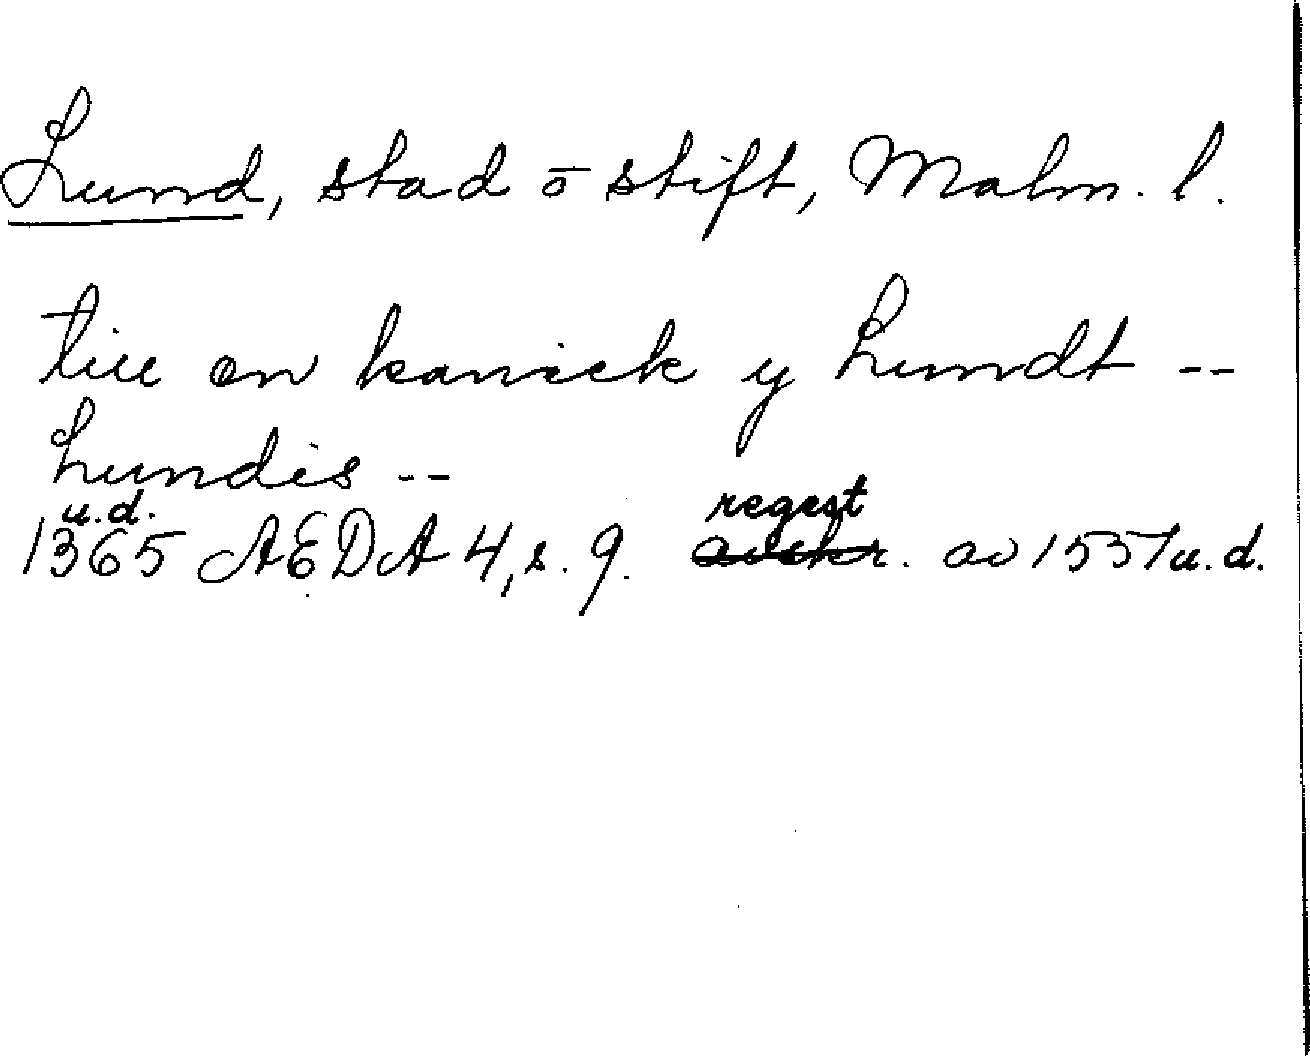 Lund, stad o stift, Malm. l.
till en kanick y Lundt --
Lundis --
u.d. regest
1365 AEDA 4, s. 9. avskr. av 1537 u.d.